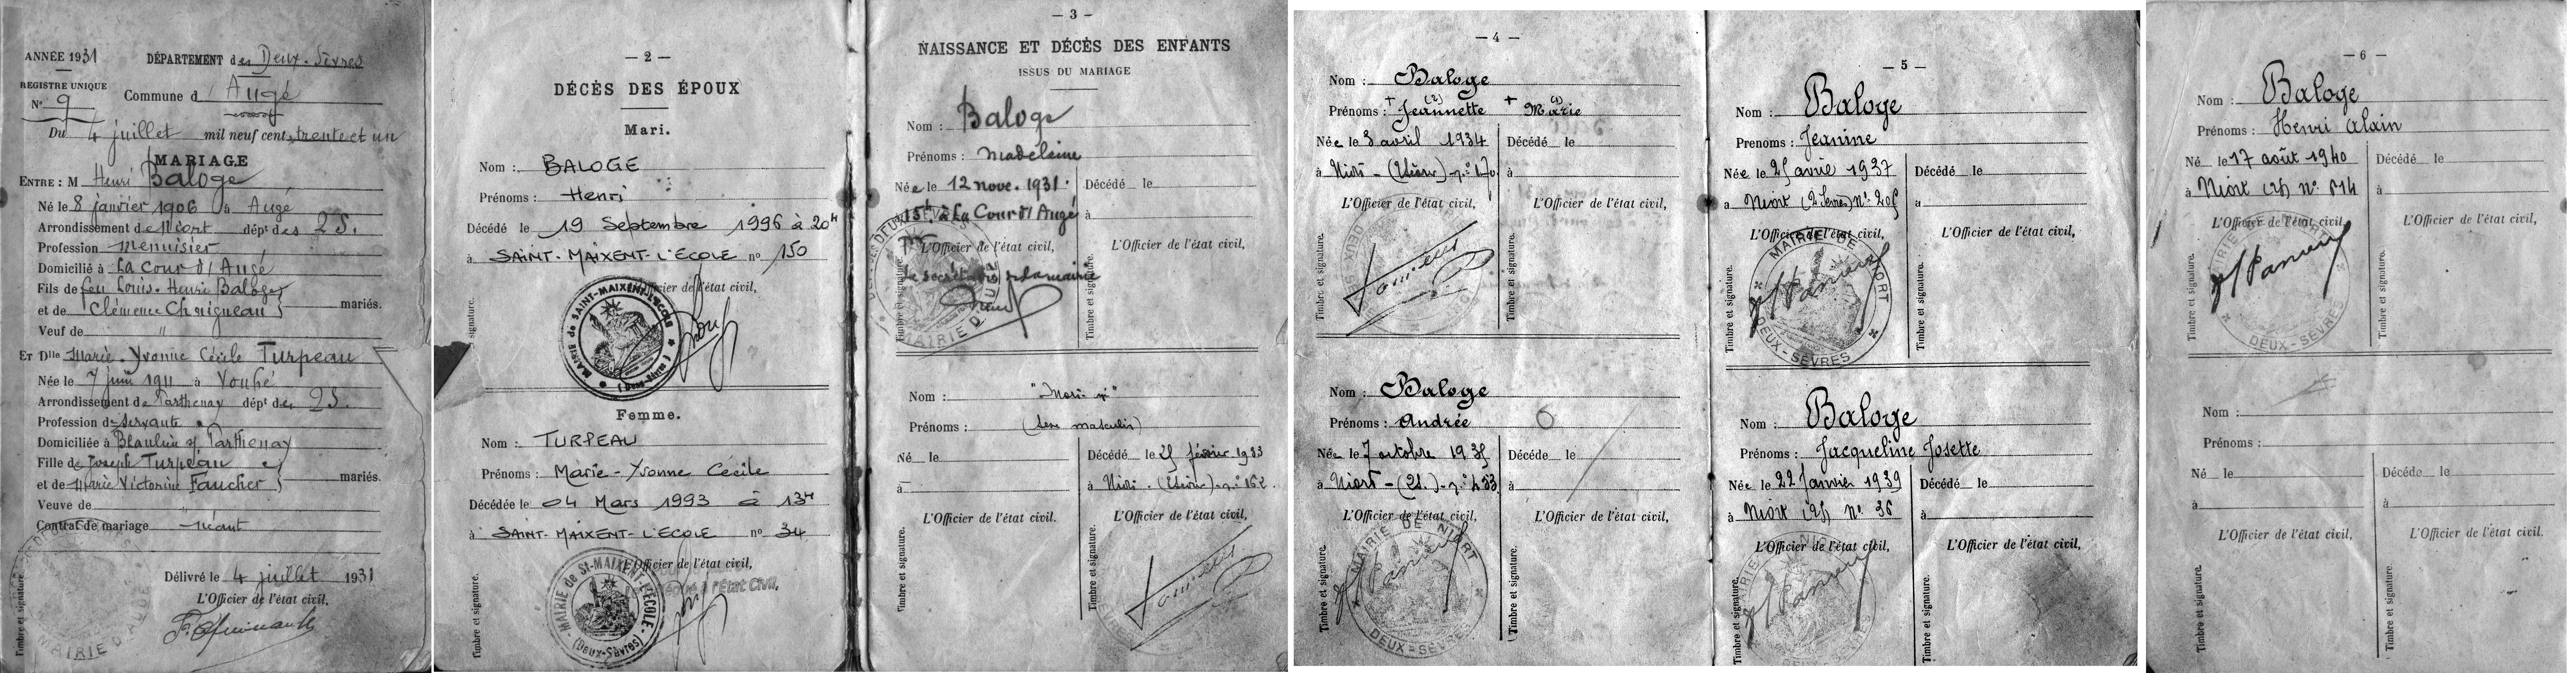 ANNÉE 1931
DÉPARTEMENT des Deux-Sèvres
REGISTRE UNIQUE
N° 9
Commune d'Augé
Du 4 juillet mil neuf cent trente et un
MARIAGE
ENTRE : M Henri Baloge
Né le 8 janvier 1906 à Augé
Arrondissement de Niort dépt des 2S.
Profession menuisier
Domicilié à La Cour d'Augé
Fils de feu Louis-Henri Baloge
et de Clémence Chaigneau mariés.
Veuf de "
ET Dlle Marie-Yvonne Cécile Turpeau
Née le 7 juin 1911 à Vouhé
Arrondissement de Parthenay dépt des 2S.
Profession de servante
Domiciliée à Parthenay
Fille de Joseph Turpeau et
et de Marie Victorine Faucher mariés.
Veuve de "
Contrat de mariage néant
Délivré le 4 juillet 1931
L'Officier de l'état civil,
Timbre et signature.
MAIRIE D'AUGÉ
— 2 —
DÉCÈS DES ÉPOUX
Mari.
Nom : BALOGE
Prénoms : Henri
Décédé le 19 Septembre 1996 à 20H
à SAINT-MAIXENT-L'ECOLE n° 150
Officier de l'état civil,
signature.
MAIRIE de SAINT-MAIXENT-L'ECOLE
(Deux-Sèvres)
Femme.
Nom : TURPEAU
Prénoms : Marie-Yvonne Cécile
Décédée le 04 Mars 1993 à 13H
à SAINT-MAIXENT-L'ECOLE n° 34
Officier de l'état civil,
à l'État Civil,
Timbre et signature.
MAIRIE de St-MAIXENT-L'ECOLE
(Deux-Sèvres)
— 3 —
NAISSANCE ET DÉCÈS DES ENFANTS
ISSUS DU MARIAGE
Nom : Baloge
Prénoms : Madeleine
Née le 12 nove. 1931.
15h à La Cour d'Augé
L'Officier de l'état civil,
Le secrétaire de la mairie
Timbre et signature.
MAIRIE D'AUGÉ
Décédé le
à
L'Officier de l'état civil,
Timbre et signature.
Nom : "Mort-né"
Prénoms : (sexe masculin)
Né le
à
L'Officier de l'état civil.
Timbre et signature.
Décédé le 25 février 1933
à Niort - (2 Sèvres) - n° 162.
L'Officier de l'état civil,
Timbre et signature.
— 4 —
Nom : Baloge
Prénoms : + Jeannette (2) + Marie (1)
Née le 3 avril 1934
à Niort - (2 Sèvres) - n° 170
L'Officier de l'état civil,
Timbre et signature.
Décédé le
à
L'Officier de l'état civil,
Timbre et signature.
Nom : Baloge
Prénoms : Andrée
Née le 7 octobre 1935
à Niort - (2S.) - n° 433
L'Officier de l'état civil,
Timbre et signature.
MAIRIE DE NIORT
DEUX-SÈVRES
Décédé le
à
L'Officier de l'état civil,
Timbre et signature.
— 5 —
Nom : Baloge
Prenoms : Jeanine
Née le 25 avril 1937
à Niort (2 Sèvres) N° 205
L'Officier de l'état civil,
Timbre et signature.
MAIRIE DE NIORT
DEUX-SÈVRES
Décédé le
à
L'Officier de l'état civil,
Timbre et signature.
Nom : Baloge
Prénoms : Jacqueline Josette
Née le 22 Janvier 1939
à Niort (2S) N° 36
L'Officier de l'état civil,
Timbre et signature.
Décédé le
à
L'Officier de l'état civil,
Timbre et signature.
— 6 —
Nom : Baloge
Prénoms : Henri Alain
Né le 17 août 1940
à Niort (2S) N° 514
L'Officier de l'état civil,
Timbre et signature.
DEUX-SÈVRES
Décédé le
à
L'Officier de l'état civil,
Timbre et signature.
Nom :
Prénoms :
Né le
à
L'Officier de l'état civil,
Timbre et signature.
Décédé le
à
L'Officier de l'état civil.
Timbre et signature.